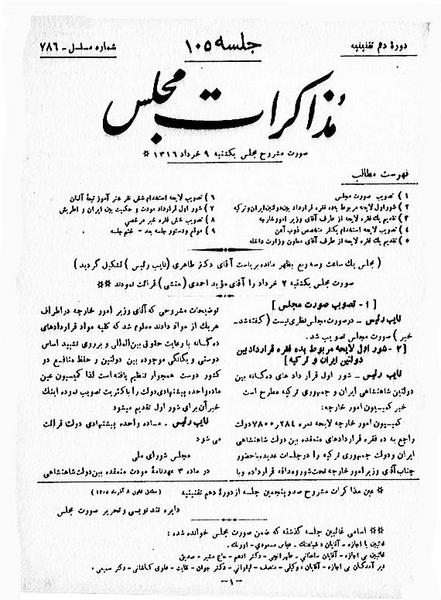 دورهٔ دهم تقنینیه
جلسه ۱۰۵
شماره مسلسل - ۷۸۶
مذاکرات مجلس
صورت مشروح مجلس یکشنبه ۹ خرداد ۱۳۱۶ *
فهرست مطالب
۱) تصویب صورت مجلس
۲) شور اول لایحه مربوط بده فقره قرارداد بین دولتین ایران و ترکیه
۳) تقدیم یک فقره لایحه از طرف آقای وزیر امور خارجه
۴) تصویب لایحه استخدام یکنفر متخصص ذوب آهن
۵) تقدیم یک فقره لایحه از طرف آقای معاون وزارت داخله
۶) تصویب لایحه استخدام شش نفر هنر آموز تبعهٔ آلمان
۷) شور اول قرارداد مودت و حکمیت بین ایران و اطریش
۸) تصویب شش فقره خبر مرخصی
۹) موقع و دستور جلسه بعد - ختم جلسه
(مجلس یک ساعت و سه ربع بظهر مانده بریاست آقای دکتر طاهری (نایب رئیس) تشکیل گردید)
صورت مجلس یکشنبه ۲ خرداد را آقای مؤید احمدی (منشی) قرائت نمودند *
[۱- تصویب صورت مجلس]
نایب رئیس - در صورت مجلس نظری نیست (گفته شد-
خیر) صورت مجلس تصویب شد.
[۲- شور اول لایحه مربوط بده فقره قرارداد بین
دولتین ایران و ترکیه]
نایب رئیس - شور اول قرارداد های ده گانه بین
دولتین شاهنشاهی ایران و جمهوری ترکیه مطرح است
خبر کمیسیون امور خارجه:
کمیسیون امور خارجه لایحه نمره ۲۸۴ ر ۷۸۰۰ دولت
راجع به ده فقره قراردادهای منعقده بین دولت شاهنشاهی
ایران و دولت جمهوری ترکیه را در جلسات عدیده با حضور
جناب آقای وزیر امور خارجه تحت شور و مداقه قرار داده و با
توضیحات مشروحی که آقای وزیر امور خارجه در اطراف
هر یک از مواد دادند معلوم شد که کلیه مواد قراردادهای
ده گانه با رعایت حقوق بین المللی و بر روی تشیید اساس
دوستی و یگانگی موجوده بین دولتین و حفظ منافع دو
کشور دوست همجوار تنظیم یافته است لذا کمیسیون عین
ماده واحده پیشنهادی دولت را با کثریت تصویب نموده اینک
خبر آن برای شور اول تقدیم میشود
نایب رئیس - ماده واحده پیشنهادی دولت قرائت
می شود
مجلس شورای ملی
در ماده ۳ عهدنامهٔ مودت منعقده بین دولت شاهنشاهی
* عین مذاکرات مشروح صد و پنجمین جلسه از دورهٔ دهم تقنینیه
دایره تند نویسی و تحریر صورت مجلس
* اسامی غائبین جلسه گذشته که ضمن صورت مجلس خوانده شده:
غائبین با اجازه - آقایان: عباس مسعودی - اورنگ.
غائبین بی اجازه - آقایان:
-۱-